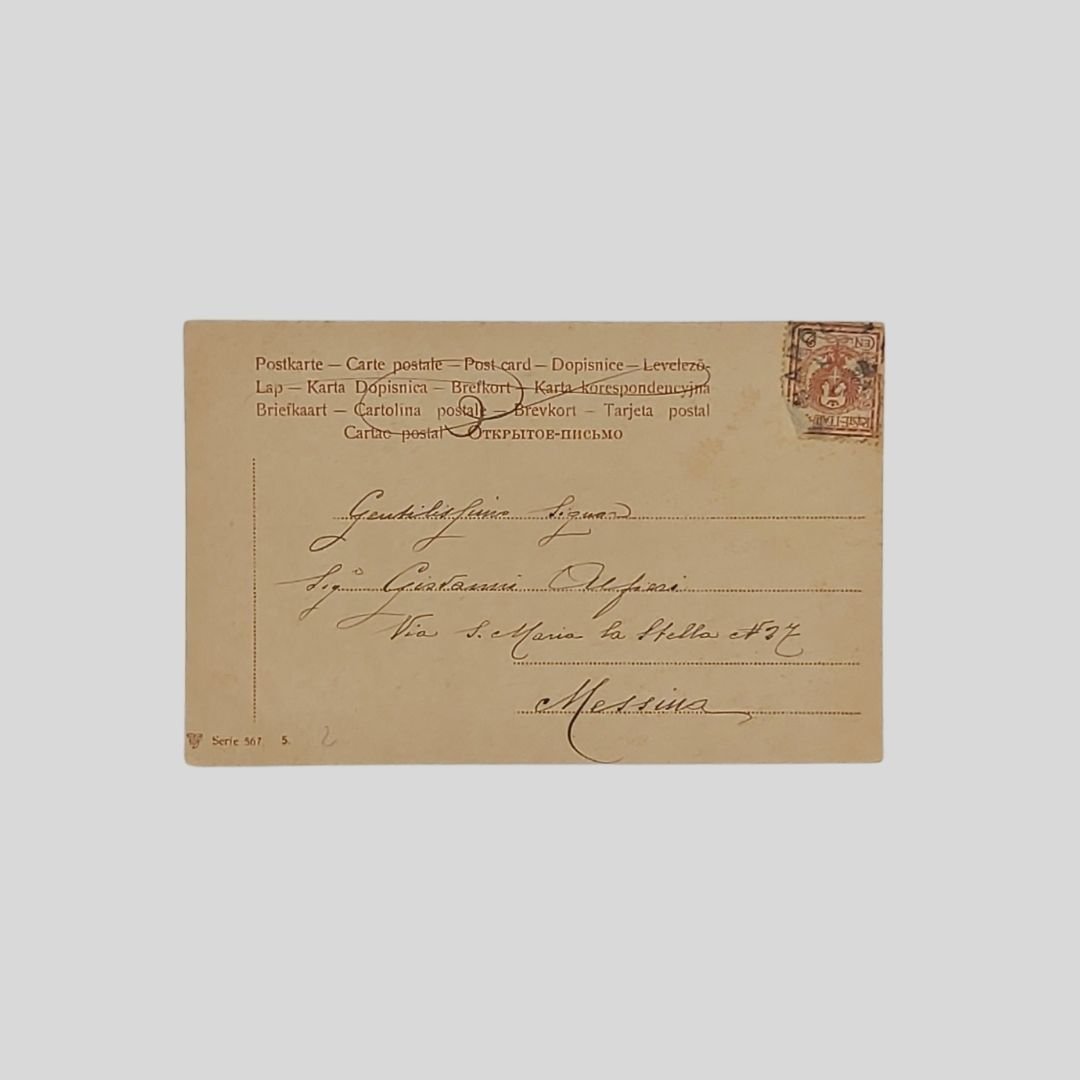 Postkarte – Carte postale – Post card – Dopisnice – Levelező-
Lap – Karta Dopisnica – Brefkort – Karta korespondencyjna
Briefkaart – Cartolina postale – Brevkort – Tarjeta postal
Cartac postal – Открытое-письмо
Gentilissimo Signor
Sigr Giovanni Alfieri
Via S. Maria la Stella N 37
Messina
Serie 567 5.
2